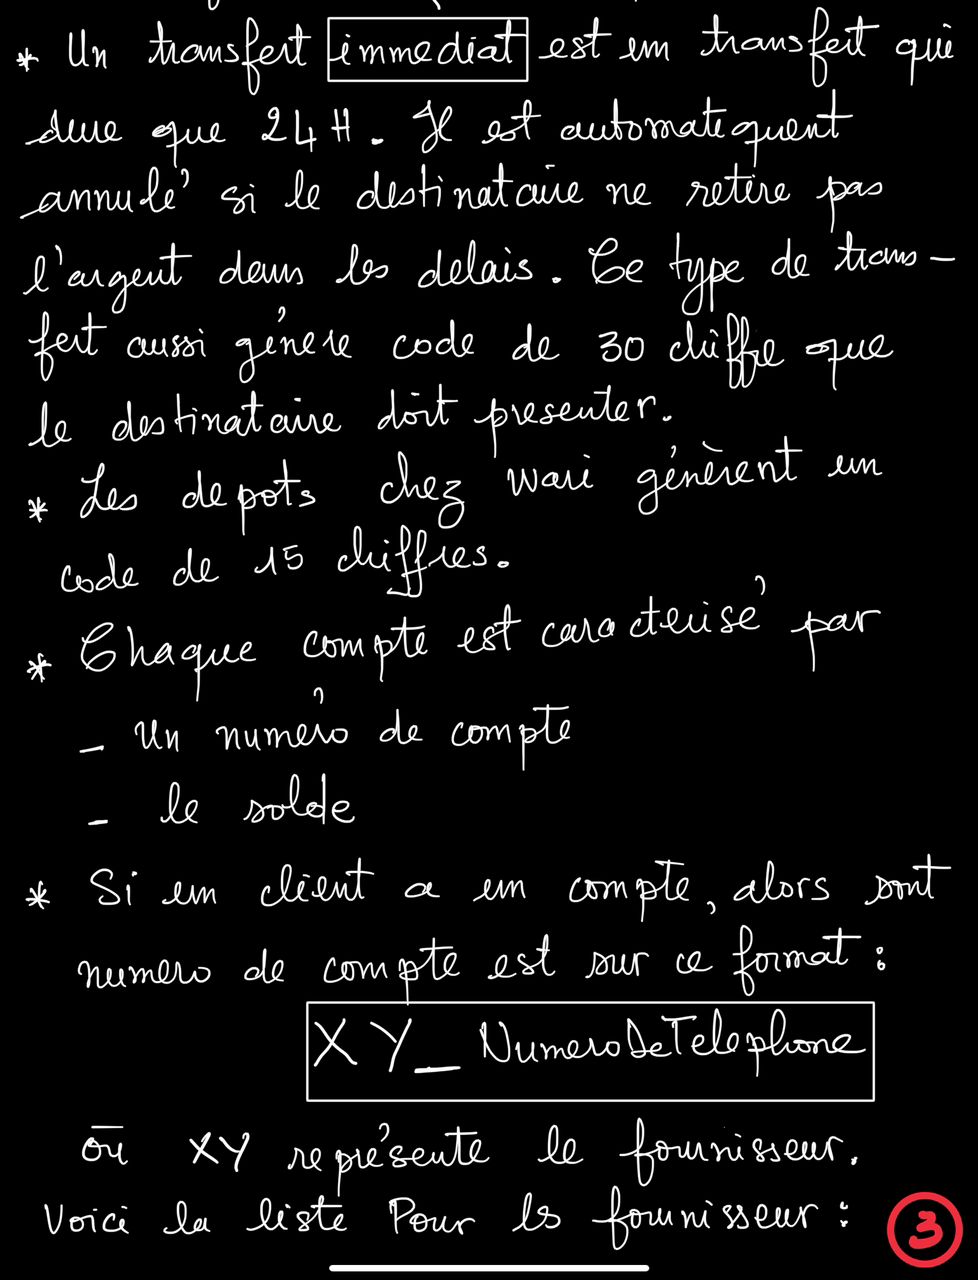 * Un transfert immediat est un transfert qui
dure que 24H. Il est automatiquent
annulé si le destinataire ne retire pas
l'argent dans les delais. Ce type de trans-
fert aussi génere code de 30 chiffre que
le destinataire doit presenter.
* Les depots chez wari génèrent un
code de 15 chiffres.
* Chaque compte est caracterisé par
- Un numéro de compte
- le solde
* Si un client a un compte, alors sont
numero de compte est sur ce format :
XY_NumeroDeTelephone
où XY représente le fournisseur.
Voici la liste Pour les fournisseur :
3